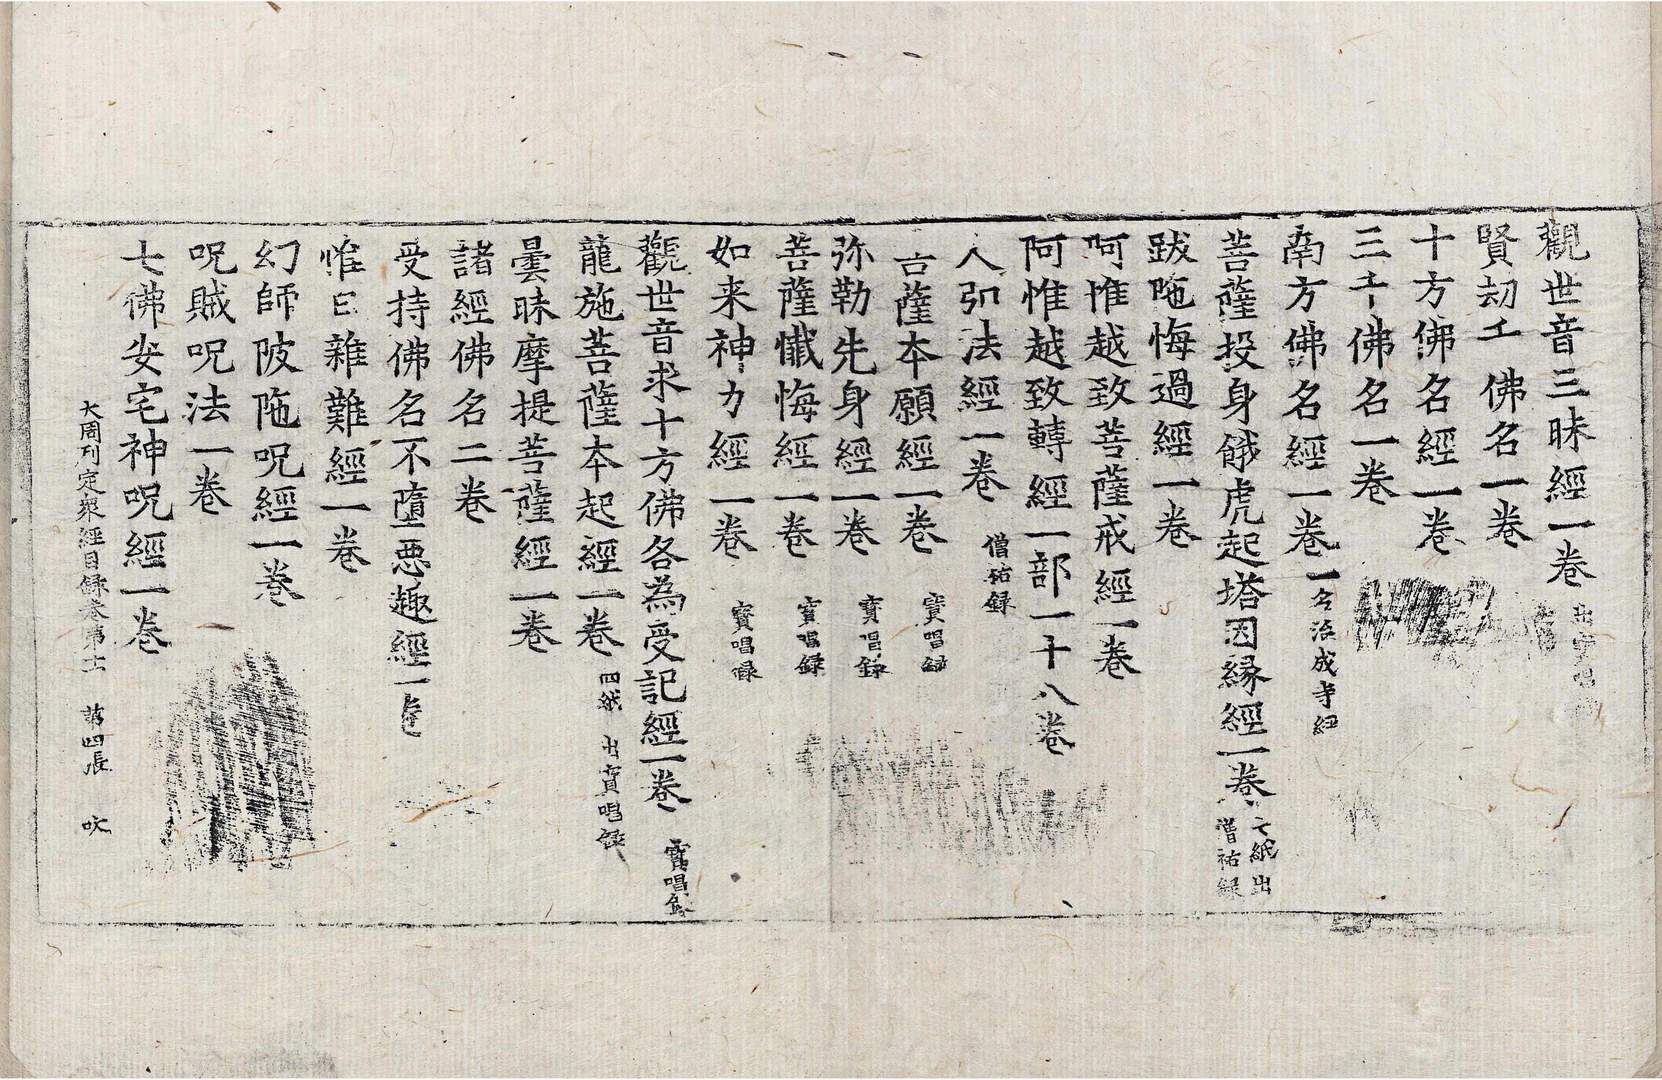 觀世音三昧經一卷 出寶唱
賢劫千佛名一卷
十方佛名經一卷
三千佛名一卷
南方佛名經一卷 一名治成寺經
菩薩投身餓虎起塔因縁經一卷 七紙出僧祐録
跋陁悔過經一卷
阿惟越致菩薩戒經一卷
阿惟越致轉經一部一十八卷 僧祐録
人弘法經一卷
菩薩本願經一卷 寶唱録
弥勒先身經一卷 寶唱録
菩薩懺悔經一卷 寶唱録
如来神力經一卷 寶唱録
觀世音求十方佛各為受記經一卷 寶唱録
龍施菩薩本起經一卷 四紙 出寶唱録
曇昧摩提菩薩經一卷
諸經佛名二卷
受持佛名不墮惡趣經一卷
惟日雜難經一卷
幻師陂陁呪經一卷
呪賊呪法一卷
七佛安宅神呪經一卷
大周刊定衆經目録卷第十一 第四張 吹